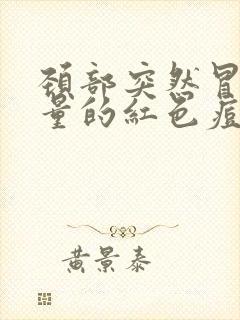 頸部突然冒
量的紅色痘
黃景泰